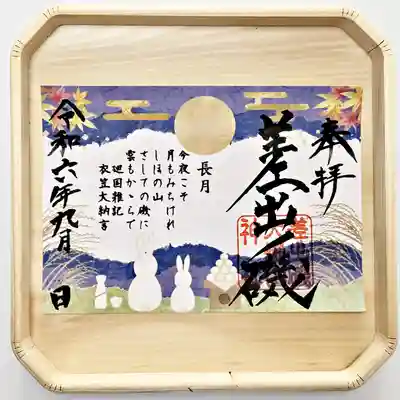 奉拝
差出磯
長月
今夜こそ
月もみちけれ
しほの山
さしでの磯に
雲もかゝらで
廻国雑記
衣笠大納言
令和六年九月 日